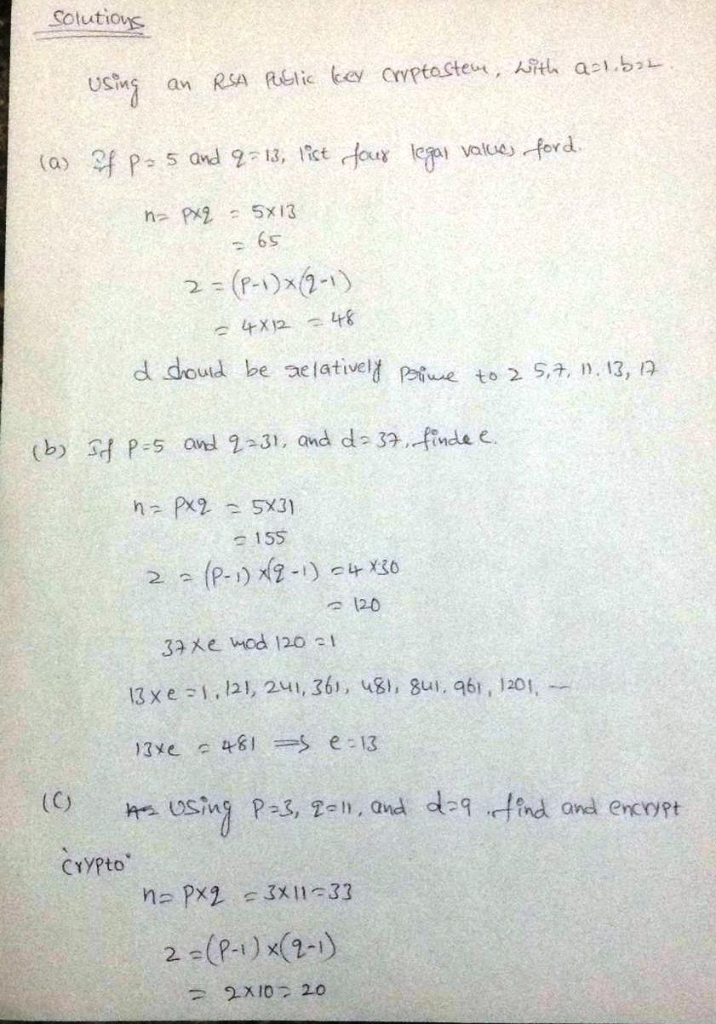 Solutions
Using an RSA Public key cryptostem, with a=1, b=2.
(a) If P = 5 and q = 13, list four legal values for d.
n = p×q = 5×13
= 65
2 = (P-1)×(q-1)
= 4×12 = 48
d should be relatively prime to 2 5,7, 11, 13, 17
(b) If P=5 and q=31, and d=37, finde e.
n = p×q = 5×31
= 155
2 = (P-1)×(q-1) = 4×30
= 120
37×e mod 120 = 1
13×e = 1, 121, 241, 361, 481, 841, 961, 1201, --
13×e = 481 => e=13
(C) Using P=3, q=11, and d=9, find and encrypt
"crypto"
n = p×q = 3×11=33
2 = (P-1)×(q-1)
= 2×10 = 20